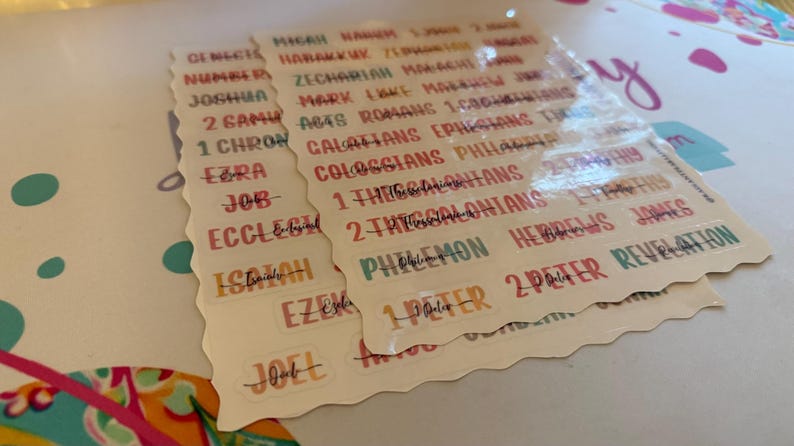 GENESIS
NUMBER
JOSHUA
2 SAMU
1 CHRON
EZRA
Ezra
JOB
Job
ECCLESI
Ecclesiast
ISAIAH
Isaiah
EZEK
Ezeki
JOEL
Joel
AMOS
OBADIAH
MICAH NAHUM 1 JOHN 2 JOHN
HABAKKUK ZEPHANIAH HAGGAI
ZECHARIAH MALACHI JOHN
MARK LUKE MATTHEW JUDE
ACTS ROMANS 1 CORINTHIANS
GALATIANS EPHESIANS TITUS
Galatians
COLOSSIANS PHILIPPIANS
Colossians Philippians
1 THESSALONIANS 2 TIMOTHY
1 Thessalonians
2 THESSALONIANS 1 TIMOTHY
2 Thessalonians 1 Timothy
PHILEMON HEBREWS JAMES
Philemon Hebrews James
1 PETER 2 PETER REVELATION
1 Peter 2 Peter Revelation